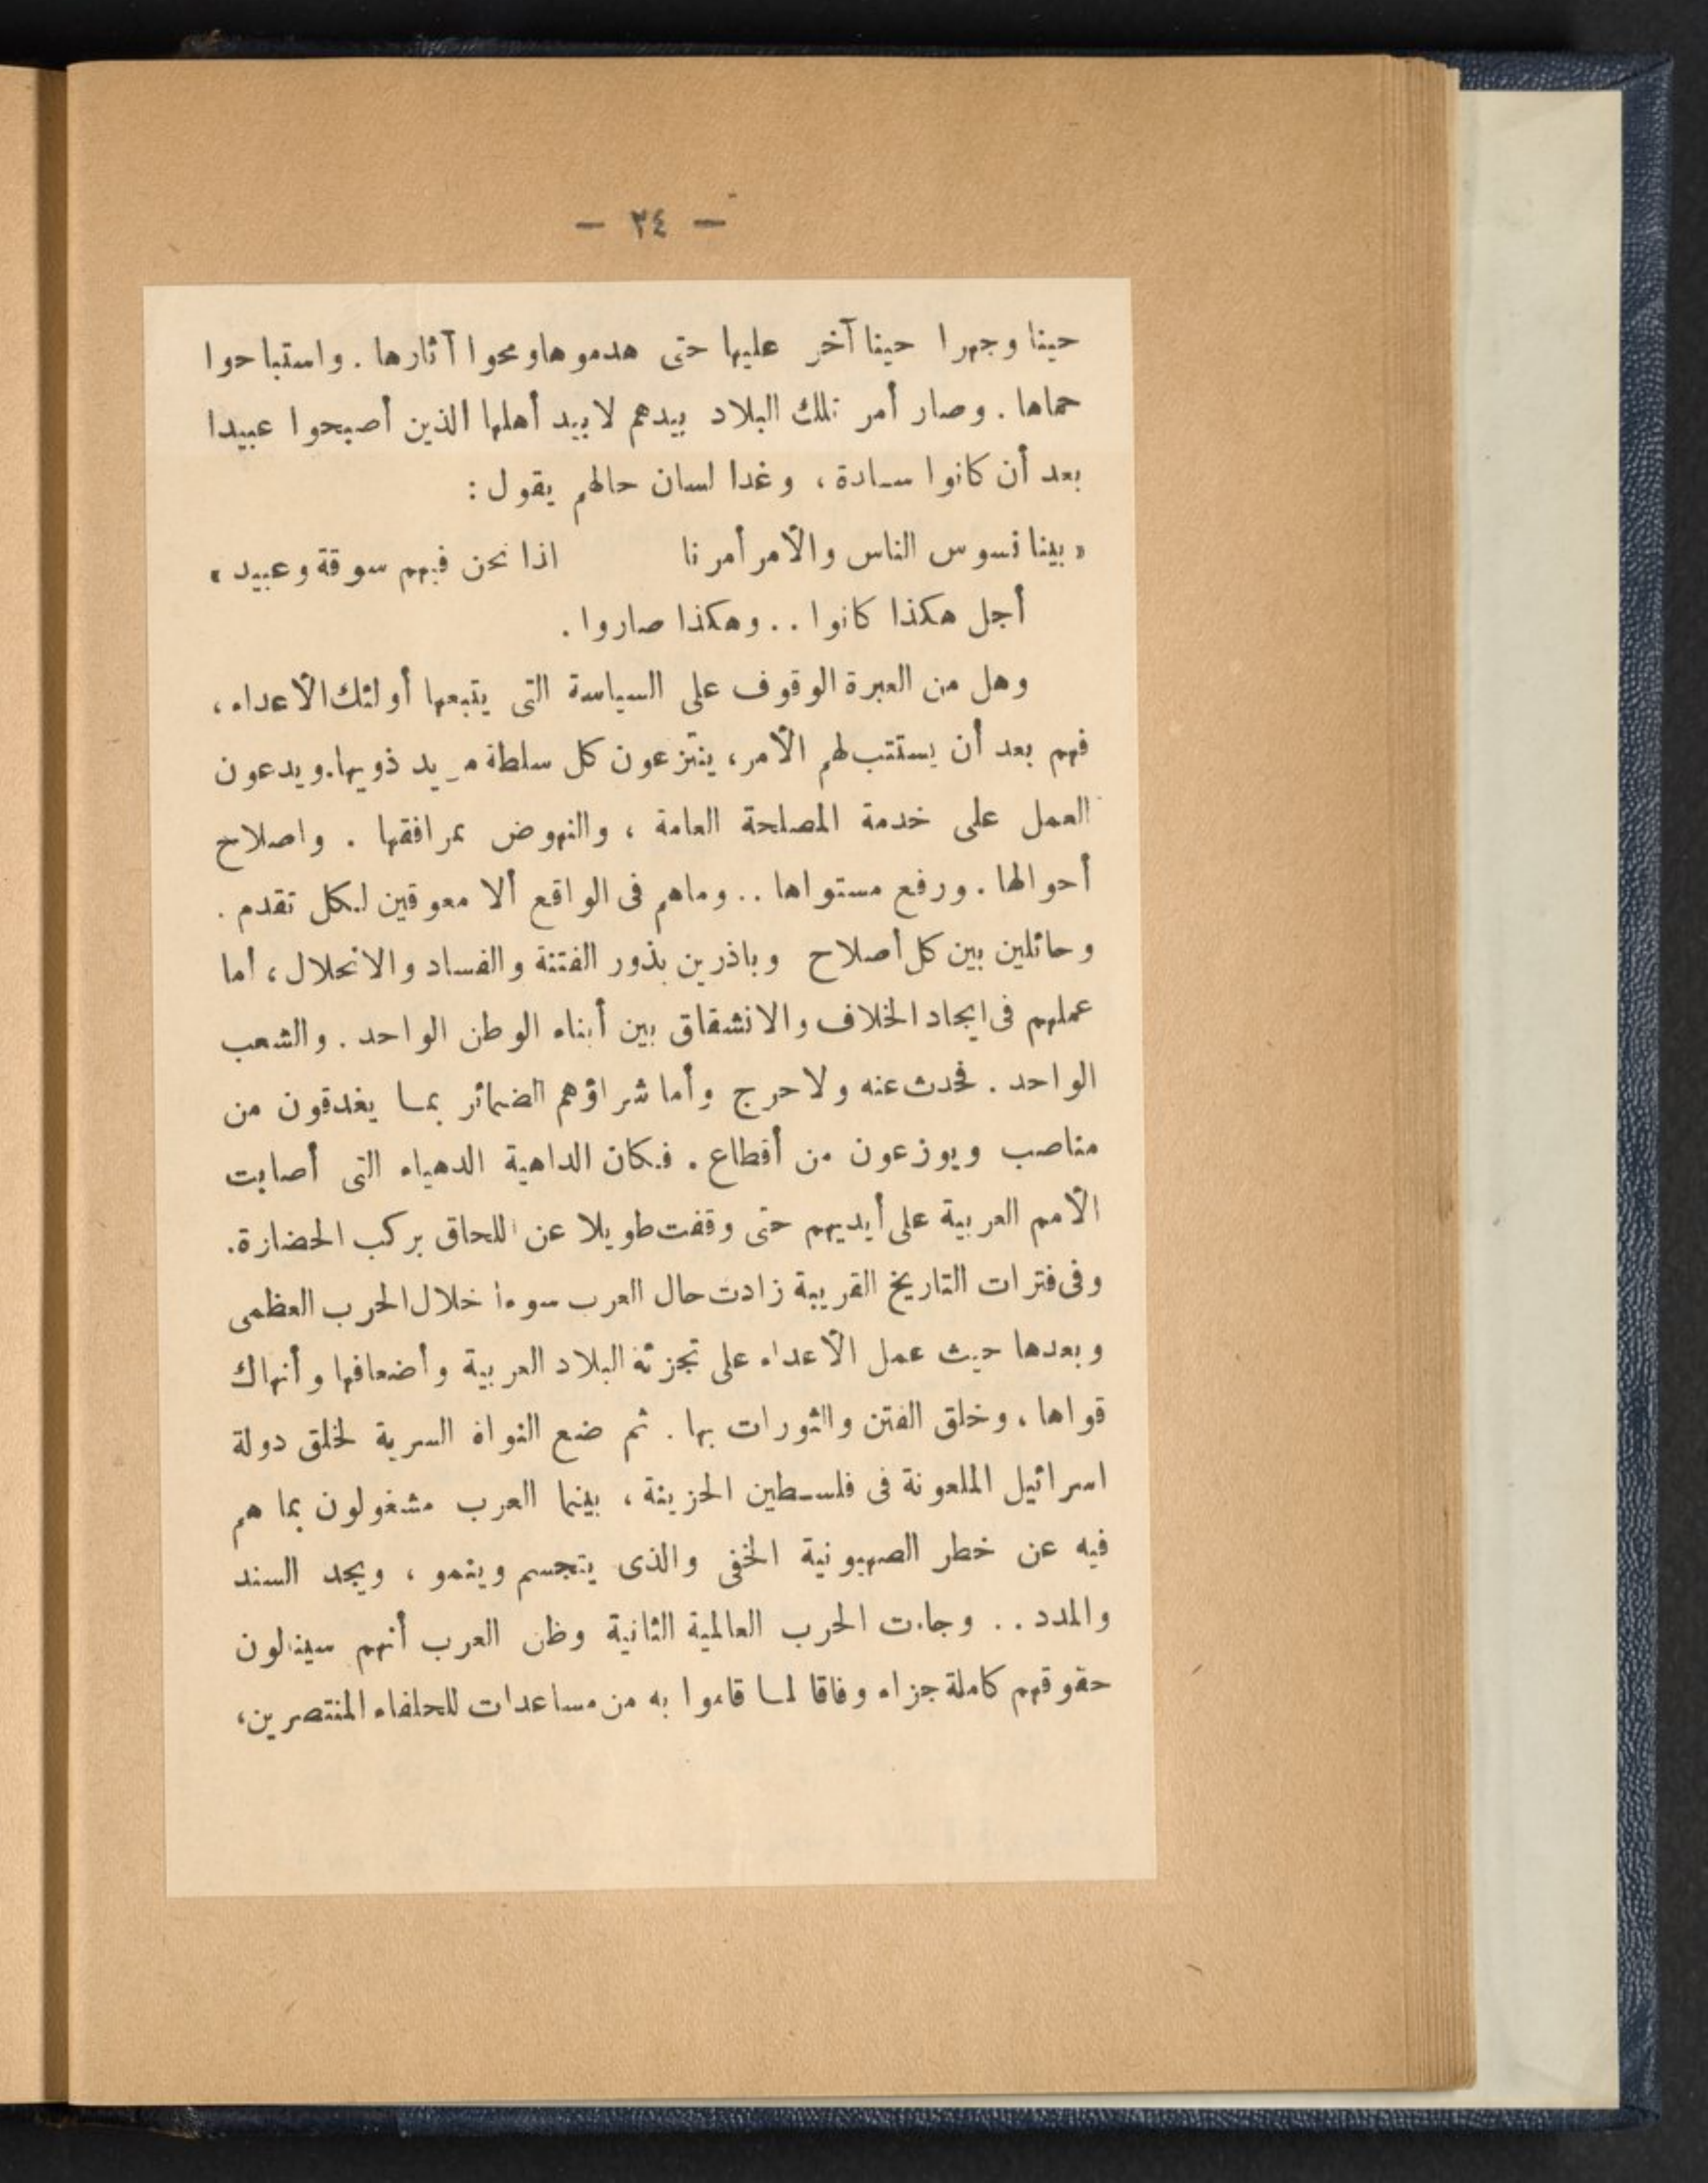 — ٣٤ —
حينا وجهرا حينا آخر عليها حتى هدموها ومحوا آثارها . واستباحوا
حماها . وصار أمر تلك البلاد بيدهم لا بيد أهلها الذين أصبحوا عبيدا
بعد أن كانوا سادة ، وغدا لسان حالهم يقول :
« بينا نسوس الناس والأمر أمرنا اذا نحن فيهم سوقة وعبيد »
أجل هكذا كانوا . . وهكذا صاروا .
وهل من العبرة الوقوف على السياسة التى يتبعها أولئك الأعداء ،
فهم بعد أن يستتب لهم الأمر ، ينتزعون كل سلطة يد ذويها . ويدعون
العمل على خدمة المصلحة العامة ، والنهوض بمرافقها . واصلاح
أحوالها . ورفع مستواها . . وماهم فى الواقع ألا معوقين لكل تقدم .
وحائلين بين كل أصلاح وباذرين بذور الفتنة والفساد والانحلال ، أما
عملهم فى ايجاد الخلاف والانشقاق بين أبناء الوطن الواحد . والشعب
الواحد . فحدث عنه ولا حرج وأما شراؤهم الضمائر بما يغدقون من
مناصب ويوزعون من أقطاع . فكان الداهية الدهياء التى أصابت
الأمم العربية على أيديهم حتى وقفت طويلا عن اللحاق بركب الحضارة .
وفى فترات التاريخ القريبة زادت حال العرب سوءا خلال الحرب العظمى
وبعدها حيث عمل الأعداء على تجزئة البلاد العربية وأضعافها وأنهاك
قواها ، وخلق الفتن والثورات بها . ثم ضع النواة السرية لخلق دولة
اسرائيل الملعونة فى فلسطين الحزينة ، بينما العرب مشغولون بما هم
فيه عن خطر الصهيونية الخفى والذى يتجسم وينمو ، ويجد السند
والمدد . . وجاءت الحرب العالمية الثانية وظن العرب أنهم سينالون
حقوقهم كاملة جزاء وفاقا لما قاموا به من مساعدات للحلفاء المنتصرين ،